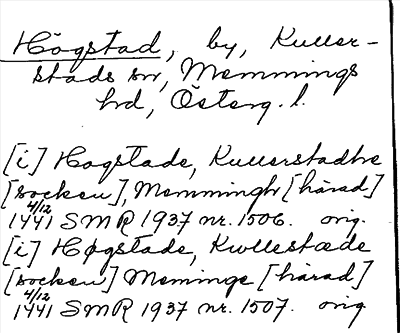 Högstad, by, Kuller-
stads sn, Memmings
hd, Österg. l.
[i] Hogstade, Kullerstadhe
[socken], Memmingh [härad]
4/12
1441 SMR 1937 nr. 1506. orig.
[i] Høgstade, Kwllestæde
[socken] Meminge [härad]
4/12
1441 SMR 1937 nr. 1507. orig